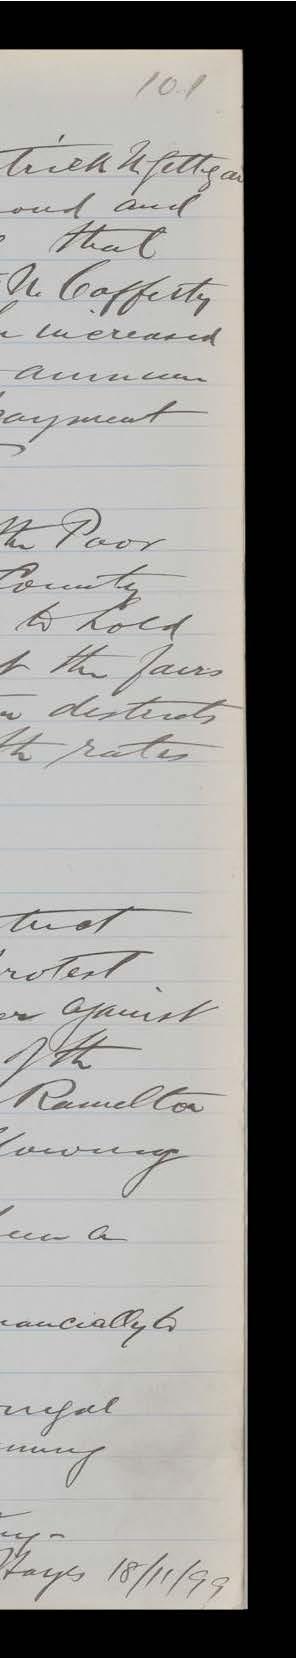 101
trick McGettigan
ond and
that
Mc Cafferty
increased
annum
payment
the Poor
County
to hold
t the fairs
districts
th rates
trict
rotest
er against
of the
Ramelton
lowing
een a
nancially to
onegal
nning
Hayes 18/11/99